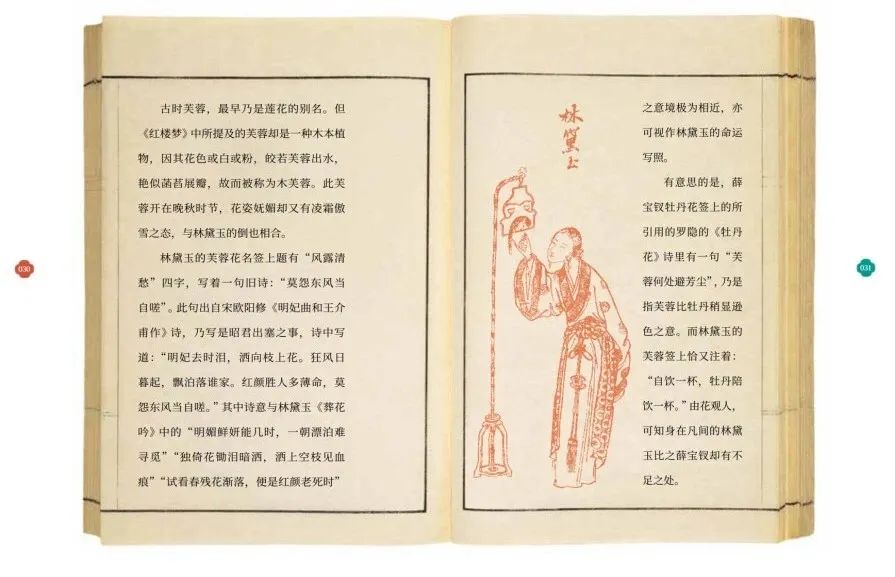 古时芙蓉，最早乃是莲花的别名。但
《红楼梦》中所提及的芙蓉却是一种木本植
物，因其花色或白或粉，皎若芙蓉出水，
艳似菡萏展瓣，故而被称为木芙蓉。此芙
蓉开在晚秋时节，花姿妩媚却又有凌霜傲
雪之态，与林黛玉的倒也相合。
林黛玉的芙蓉花名签上题有“风露清
愁”四字，写着一句旧诗：“莫怨东风当
自嗟”。此句出自宋欧阳修《明妃曲和王介
甫作》诗，乃写是昭君出塞之事，诗中写
道：“明妃去时泪，洒向枝上花。狂风日
暮起，飘泊落谁家。红颜胜人多薄命，莫
怨东风当自嗟。”其中诗意与林黛玉《葬花
吟》中的“明媚鲜妍能几时，一朝漂泊难
寻觅”“独倚花锄泪暗洒，洒上空枝见血
痕”“试看春残花渐落，便是红颜老死时”
030
林黛玉
之意境极为相近，亦
可视作林黛玉的命运
写照。
有意思的是，薛
宝钗牡丹花签上的所
引用的罗隐的《牡丹
花》诗里有一句“芙
蓉何处避芳尘”，乃是
指芙蓉比牡丹稍显逊
色之意。而林黛玉的
芙蓉签上恰又注着：
“自饮一杯，牡丹陪
饮一杯。”由花观人，
可知身在凡间的林黛
玉比之薛宝钗却有不
足之处。
031